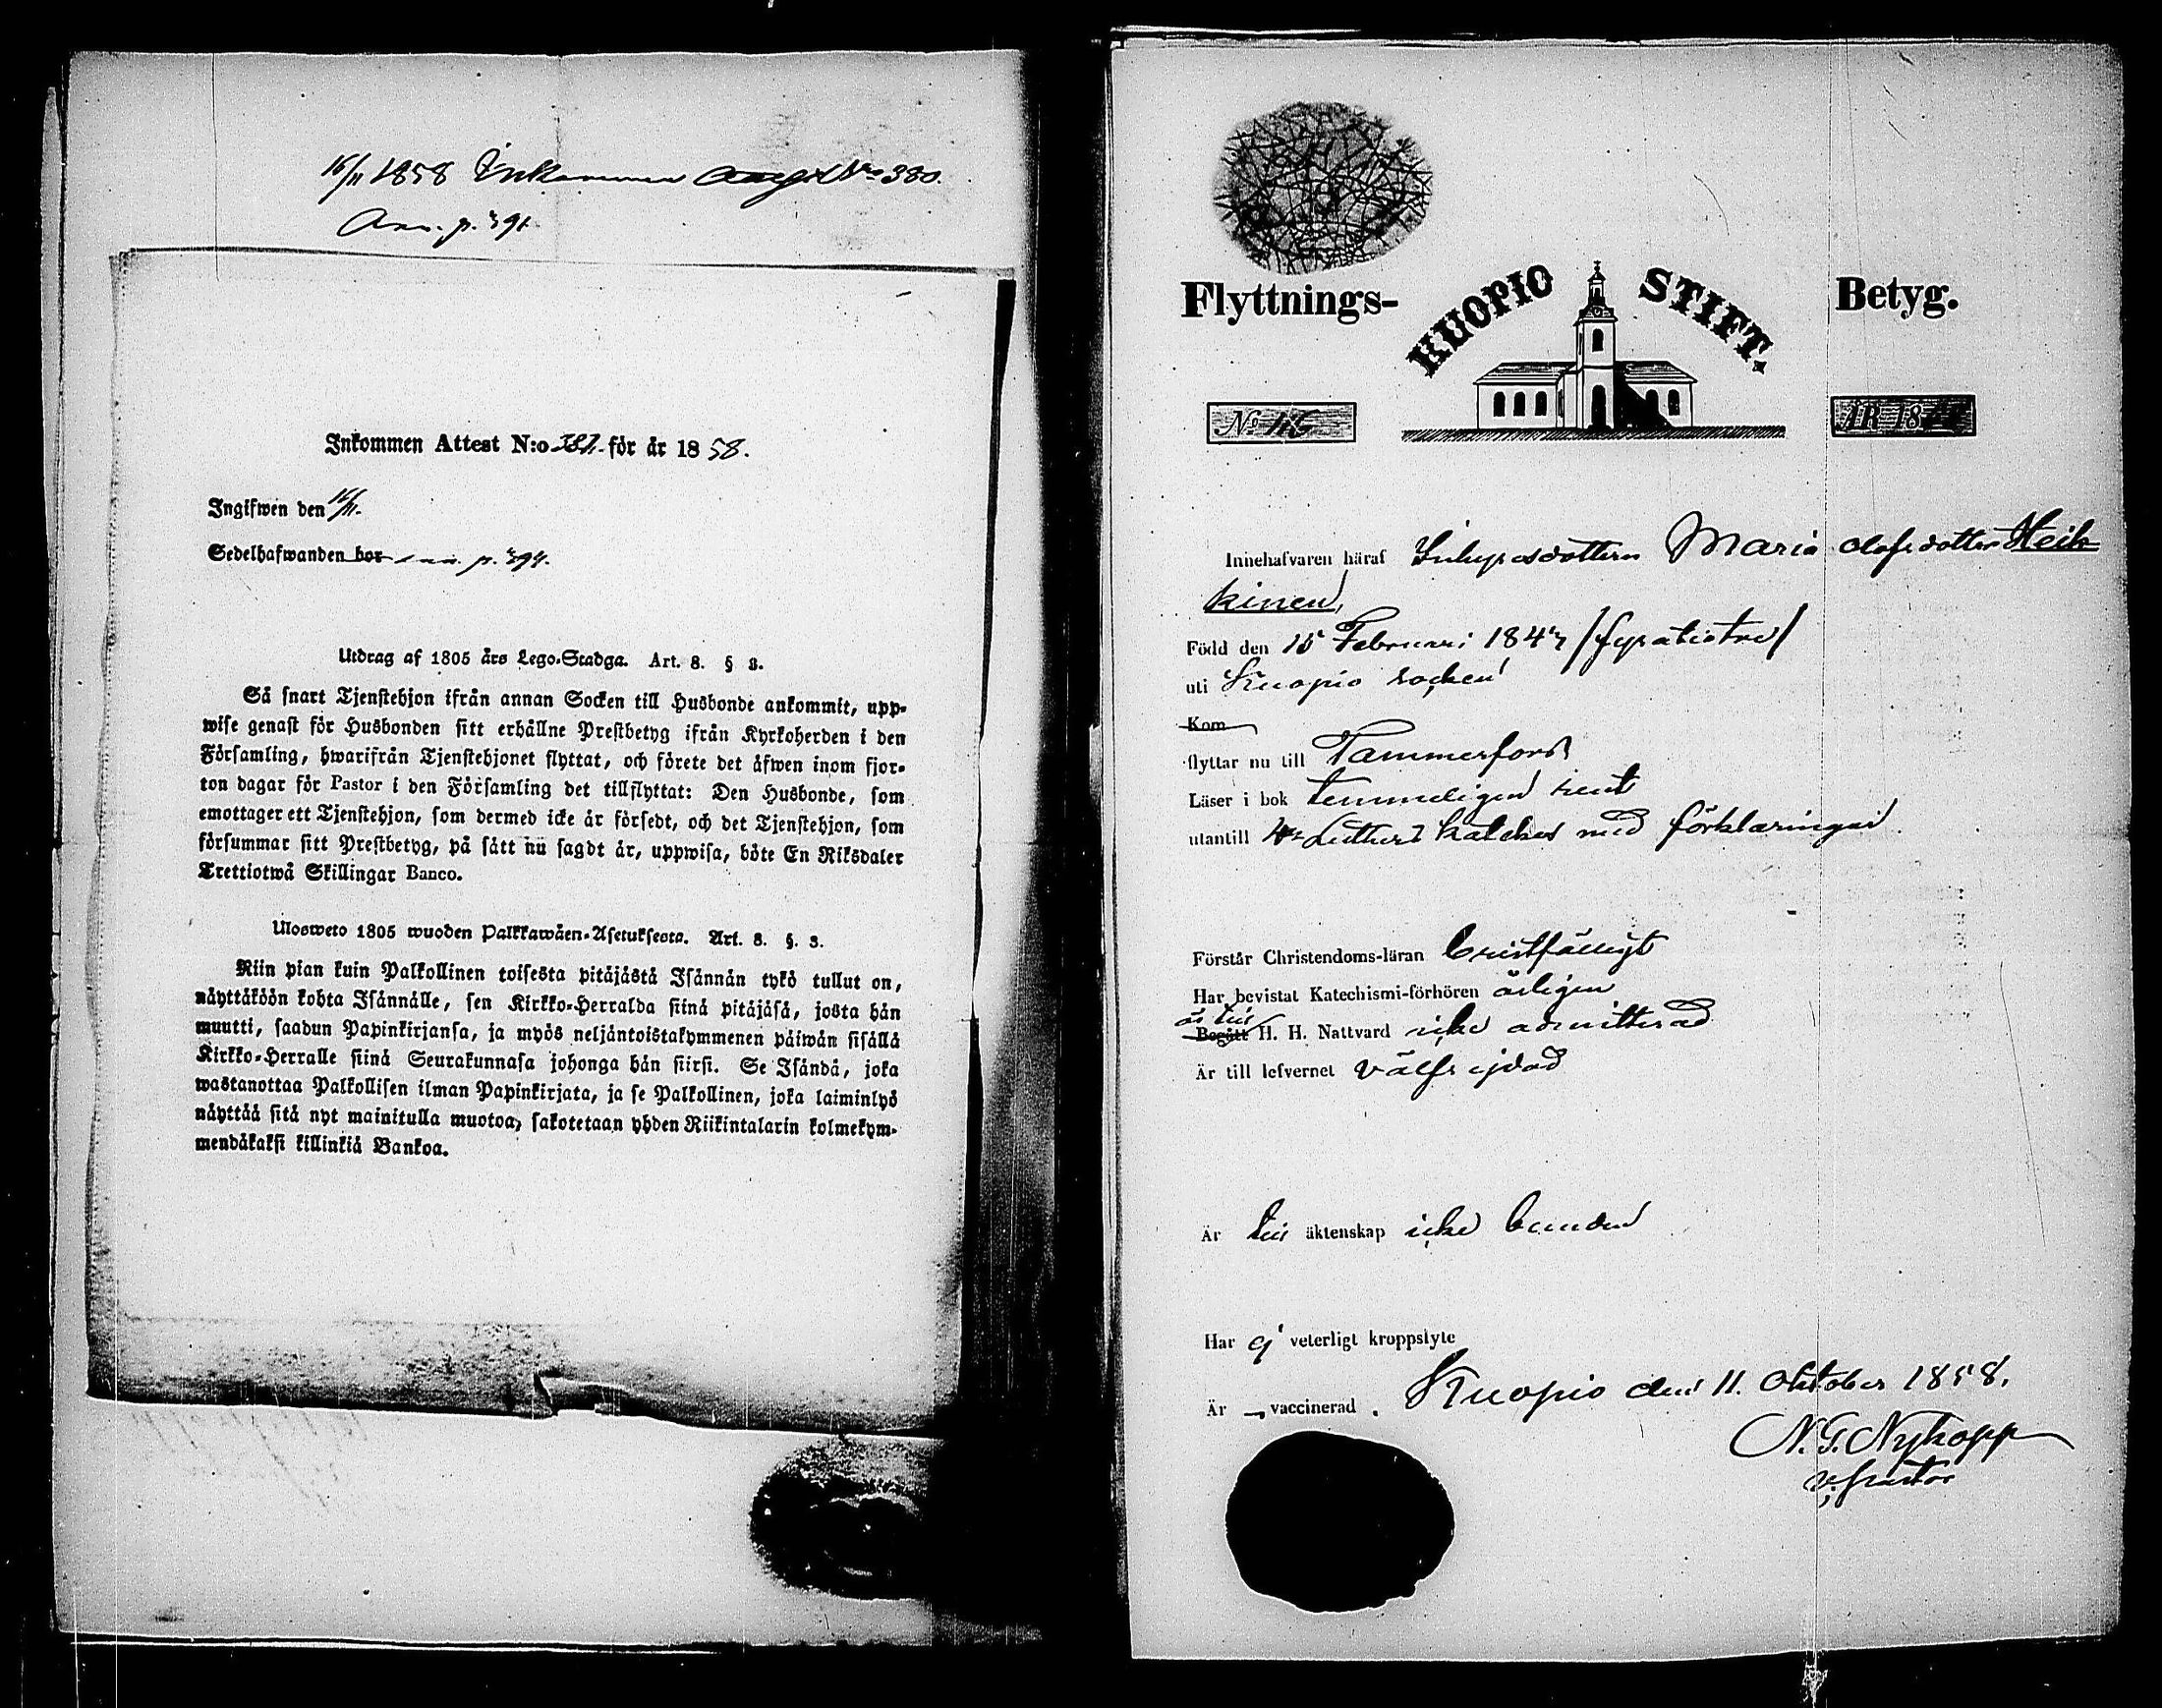 16/11 1858 Inkommen No 380.
Ann. p. 391.
Inkommen Attest N:o 381. för år 1858.
Ingifwen den 16/11.
Sedelhafwanden bor ann. p. 394.
Utdrag af 1805 års Lego-Stadga. Art. 8. § 3.
Så snart Tjenstehjon ifrån annan Socken till Husbonde ankommit, upp-
wise genast för Husbonden sitt erhållne Prestbetyg ifrån Kyrkoherden i den
Församling, hwarifrån Tjenstehjonet flyttat, och förete det äfwen inom fjor-
ton dagar för Pastor i den Församling det tillflyttat: Den Husbonde, som
emottager ett Tjenstehjon, som dermed icke är försedt, och det Tjenstehjon, som
försummar sitt Prestbetyg, på sätt nu sagdt är, uppwisa, böte En Riksdaler
Trettiotwå Skillingar Banco.
Ulosweto 1805 wuoden Palkkawäen-Asetuksesta. Art. 8. §. 3.
Niin pian kuin Palkollinen toisesta pitäjästä Isännän tykö tullut on,
näyttäköön kohta Isännälle, sen Kirkko-Herralda siinä pitäjäsä, josta hän
muutti, saadun Papinkirjansa, ja myös neljäntoistakymmenen päiwän sisällä
Kirkko-Herralle siinä Seurakunnasa johonga hän siirsi. Se Isändä, joka
wastanottaa Palkollisen ilman Papinkirjata, ja se Palkollinen, joka laiminlyö
näyttää sitä nyt mainitulla muotoa, sakotetaan yhden Riikintalarin kolmekym-
mendäkaksi killinkiä Bankoa.
Flyttnings- KUOPIO STIFT. Betyg.
No 46 ÅR 18
Innehafvaren häraf Inhysesdottern Maria Olofsdotter Heik-
kinen,
Född den 15 Februari 1843 /fyratiotre/
uti Kuopio socken
Kom
flyttar nu till Tammerfors
Läser i bok temmeligen rent
utantill Luthers kateches med förklaringar.
Förstår Christendoms-läran bristfälligt
Har bevistat Katechismi-förhören årligen
är till
Begått H. H. Nattvard icke admitterad
Är till lefvernet välfrejdad
Är till äktenskap icke bunden
Har ej veterligt kroppslyte
Är vaccinerad. Kuopio den 11. Oktober 1858.
N. G. Nykopp
v. pastor